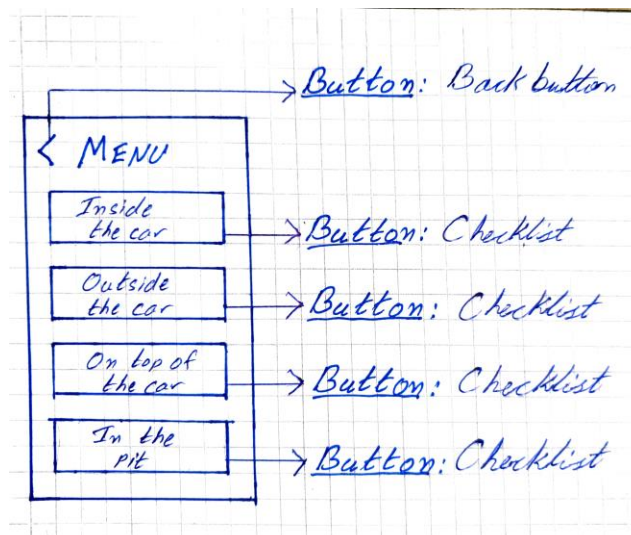 Button: Back button
< MENU
Inside
the car
Button: Checklist
Outside
the car
Button: Checklist
On top of
the car
Button: Checklist
In the
pit
Button: Checklist